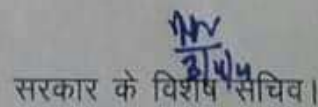 सरकार के विशेष सचिव।